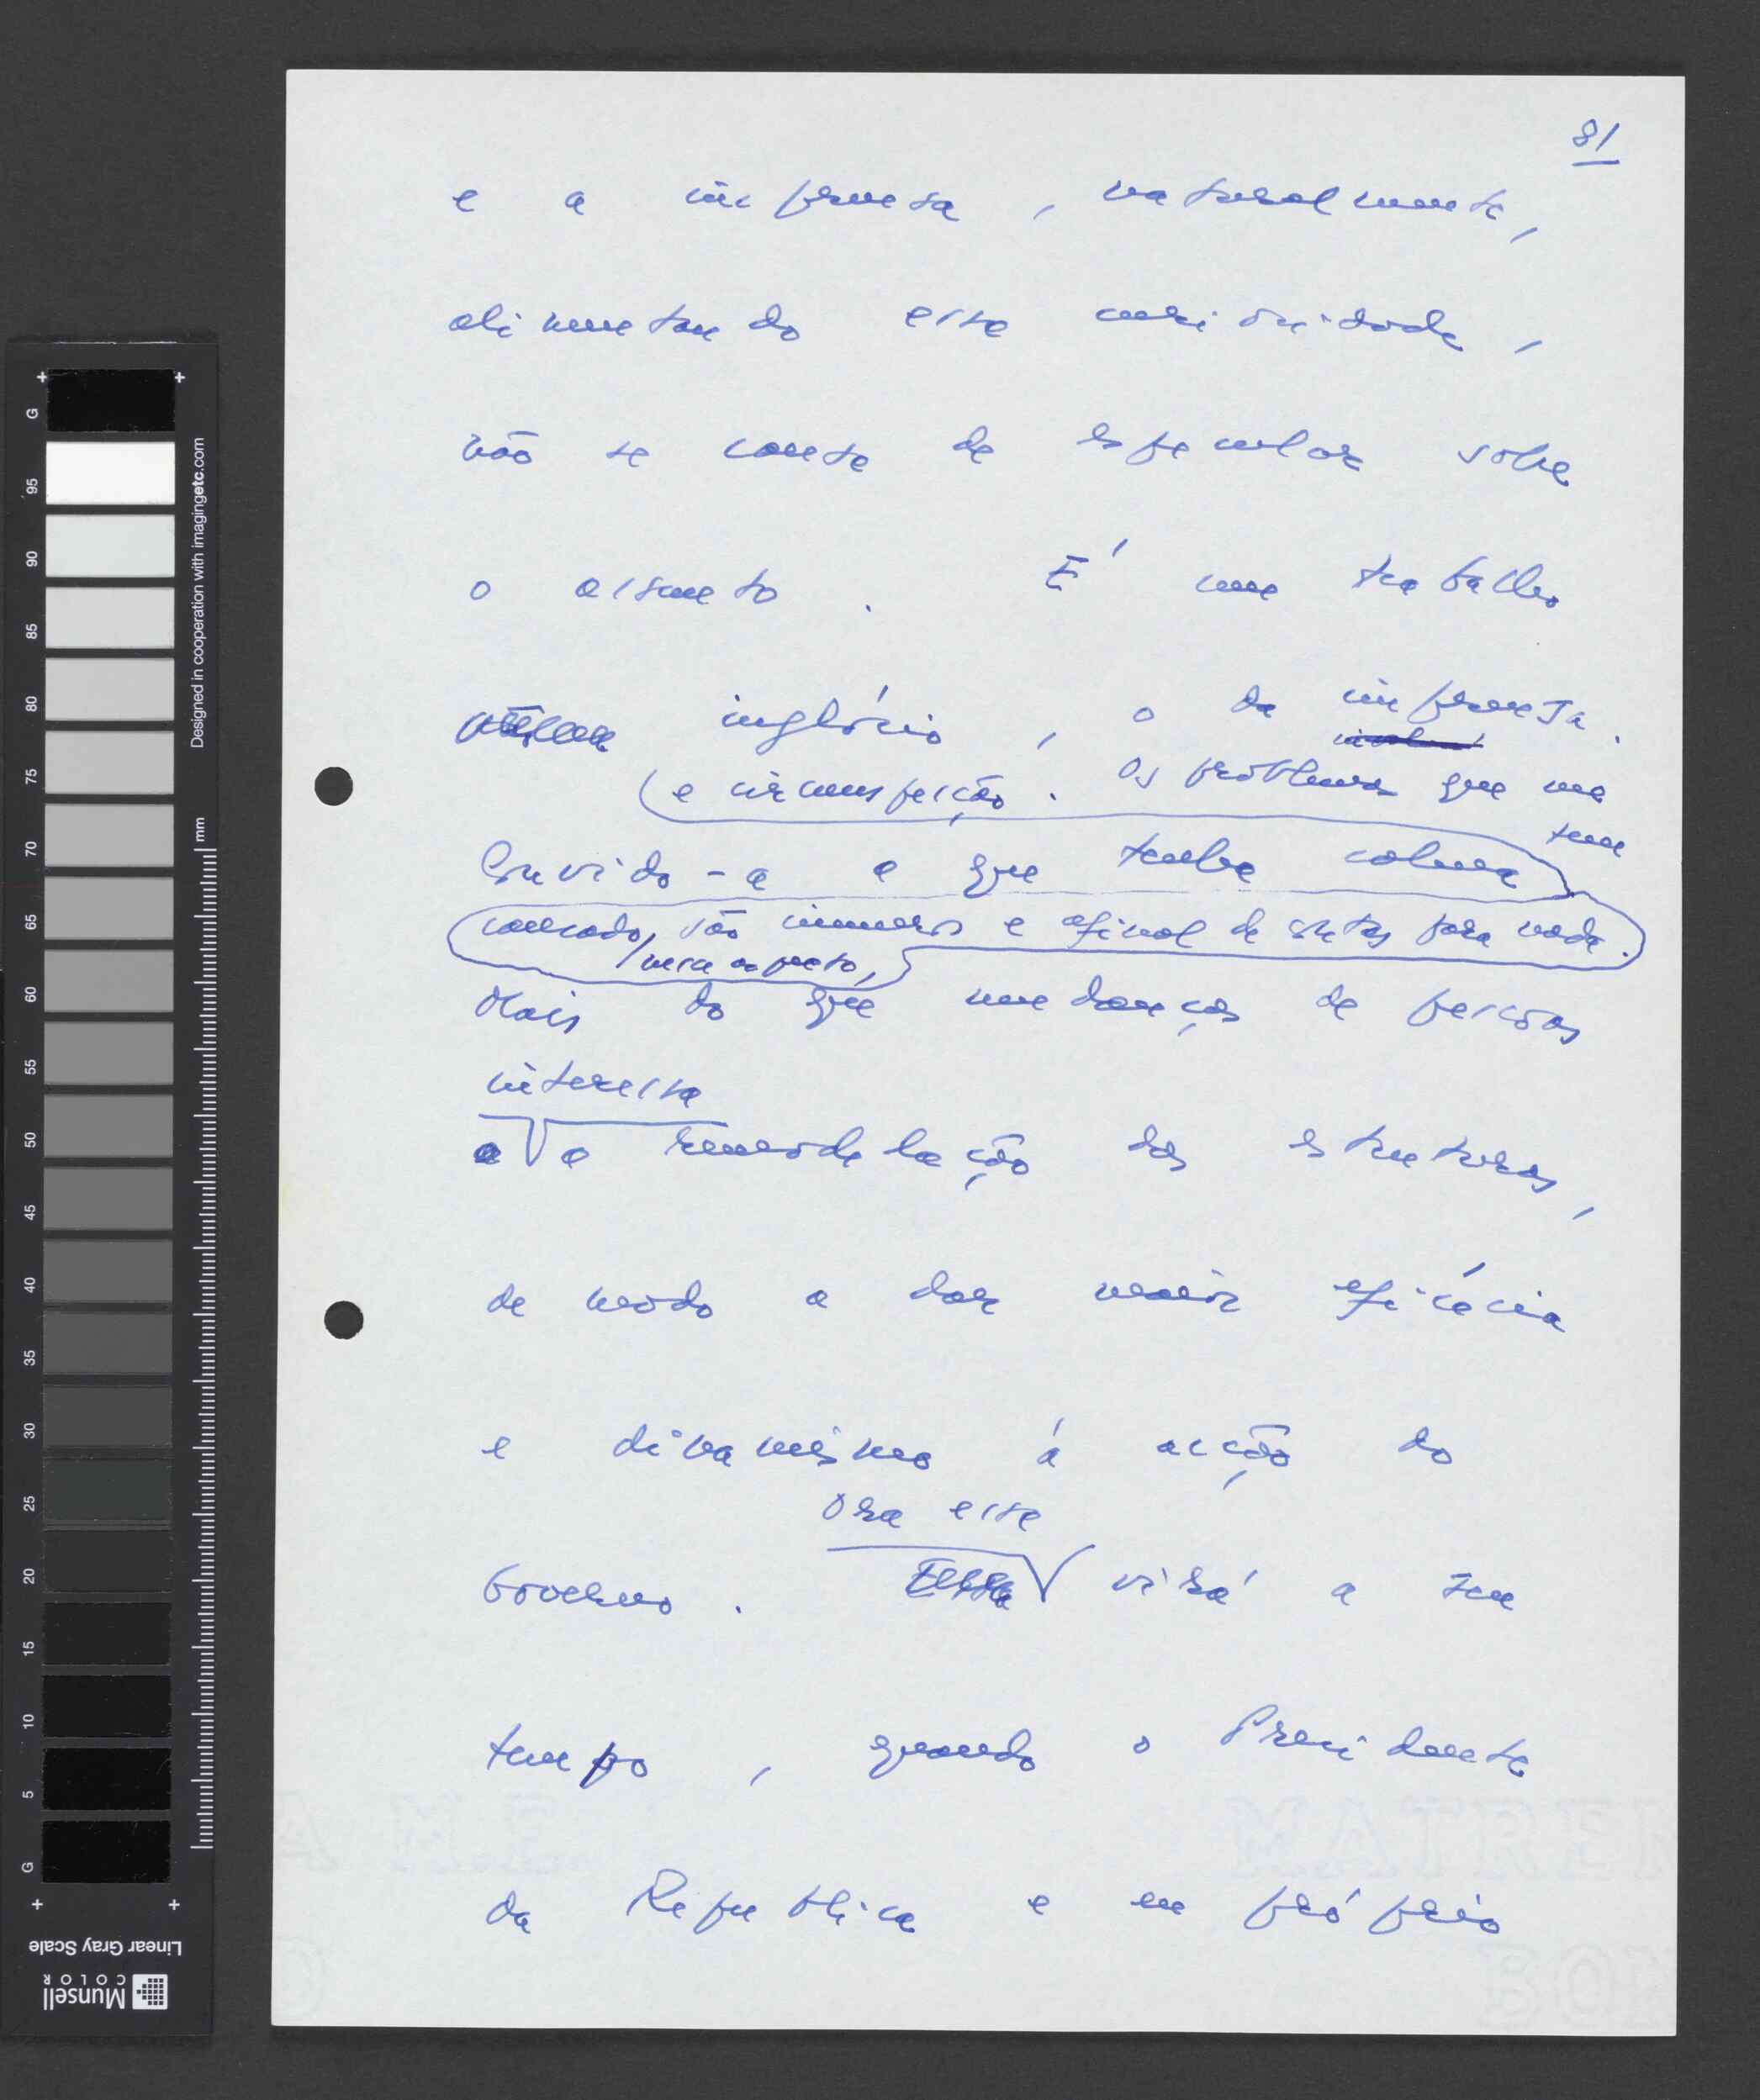 81
e a imprensa, naturalmente,
alimentando essa curiosidade,
não se cansa de especular sobre
o assunto. É um trabalho
inglório, o da imprensa.
e circunspecção. Os problemas que me
tem
Convido-a a que tenha calma
colocado, são inumeros e afinal de contas para nada.
Mais do que mudanças de pessoas
interessa
a a remodelação das estruturas,
de modo a dar maior eficácia
e dinamismo á acção do
Ora essa
Governo. virá a seu
tempo, quando o Presidente
da Republica e eu próprio
G
95
90
85
80
75
70
65
60
55
50
45
40
35
30
25
20
15
10
5
G
mm
Designed in cooperation with imagingetc.com
Linear Gray Scale
Munsell
COLOR